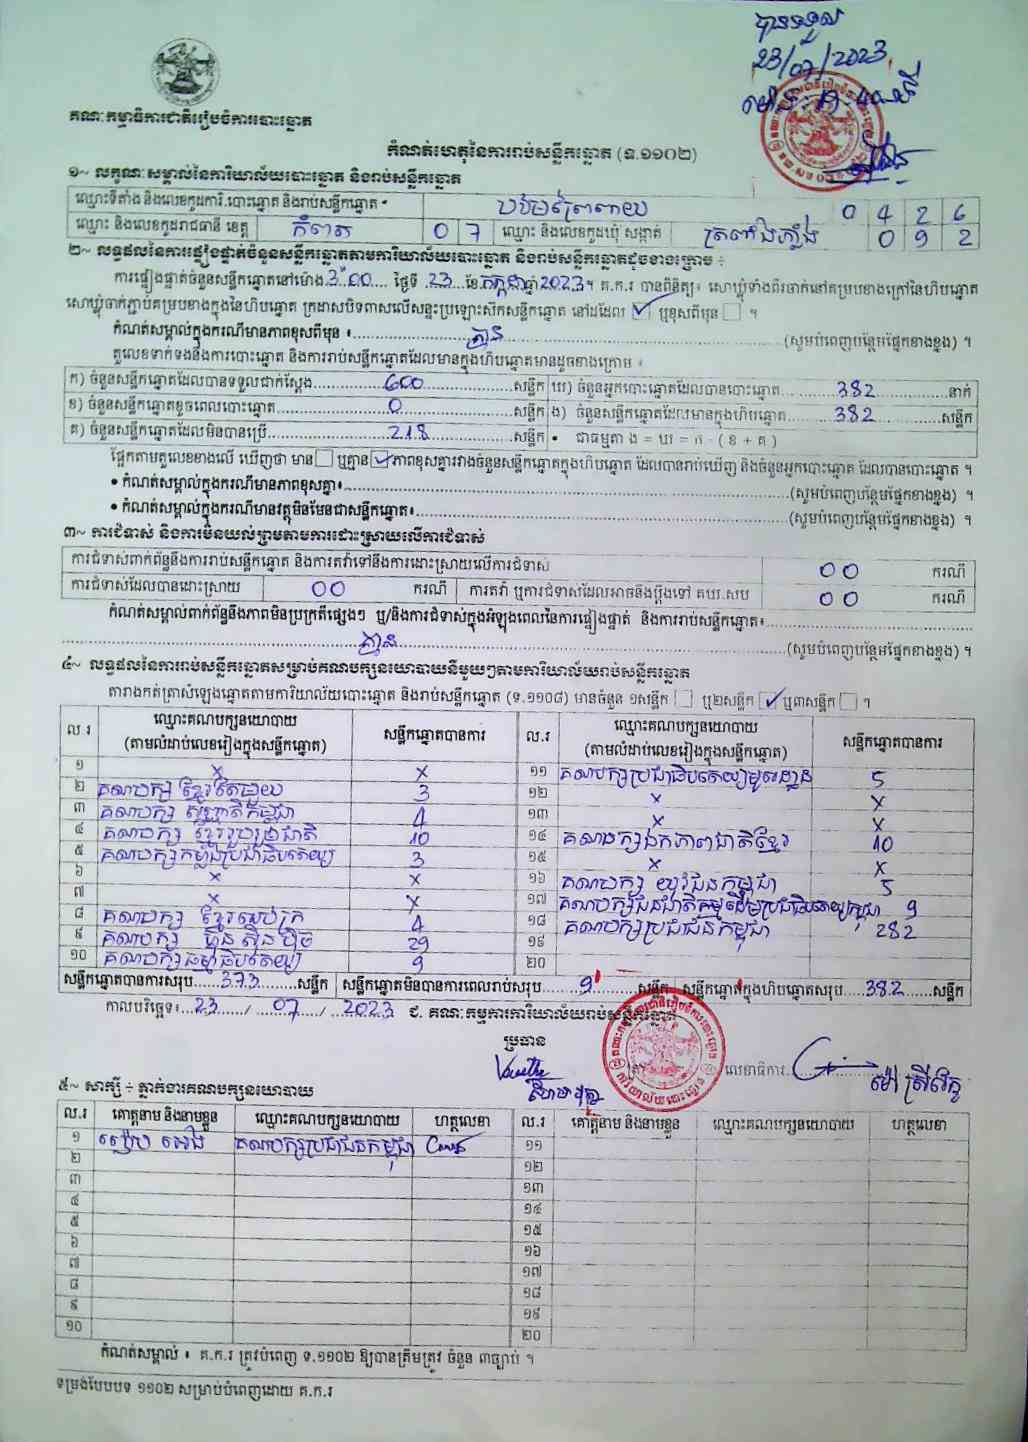 បានទទួល
23/07/2023
គណៈកម្មាធិការជាតិរៀបចំការបោះឆ្នោត
កំណត់ហេតុនៃការរាប់សន្លឹកឆ្នោត (ទ.១១០២)
១~ លក្ខណៈសម្គាល់នៃការិយាល័យបោះឆ្នោត និងរាប់សន្លឹកឆ្នោត
ឈ្មោះទីតាំង និងលេខកូដការិ.បោះឆ្នោត និងរាប់សន្លឹកឆ្នោត • 0 4 2 6
ឈ្មោះ និងលេខកូដរាជធានី ខេត្ត កំពត 0 7 ឈ្មោះ និងលេខកូដឃុំ សង្កាត់ 0 9 2
២~ លទ្ធផលនៃការផ្ទៀងផ្ទាត់ចំនួនសន្លឹកឆ្នោតតាមការិយាល័យបោះឆ្នោត និងរាប់សន្លឹកឆ្នោតដូចខាងក្រោម ÷
ការផ្ទៀងផ្ទាត់ចំនួនសន្លឹកឆ្នោតនៅម៉ោង 3:00 ថ្ងៃទី 23 ខែ កក្កដា ឆ្នាំ 2023។ គ.ក.រ បានពិនិត្យ៖ សោឃ្លុំទាំងពីរចាក់នៅគម្របខាងក្រៅនៃហិបឆ្នោត
សោឃ្លុំចាក់ភ្ជាប់គម្របខាងក្នុងនៃហិបឆ្នោត ក្រដាសបិទពាសលើសន្ទះប្រឡោះស៊ីកសន្លឹកឆ្នោត នៅដដែល ☑ ឬខុសពីមុន ☐ ។
កំណត់សម្គាល់ក្នុងករណីមានភាពខុសពីមុន ៖ គ្មាន (សូមបំពេញបន្ថែមផ្នែកខាងខ្នង) ។
តួលេខទាក់ទងនឹងការបោះឆ្នោត និងការរាប់សន្លឹកឆ្នោតដែលមានក្នុងហិបឆ្នោតមានដូចខាងក្រោម ៖
ក) ចំនួនសន្លឹកឆ្នោតដែលបានទទួលជាក់ស្តែង 600 សន្លឹក ឃ) ចំនួនអ្នកបោះឆ្នោតដែលបានបោះឆ្នោត 382 នាក់
ខ) ចំនួនសន្លឹកឆ្នោតខូចពេលបោះឆ្នោត 0 សន្លឹក ង) ចំនួនសន្លឹកឆ្នោតដែលមានក្នុងហិបឆ្នោត 382 សន្លឹក
គ) ចំនួនសន្លឹកឆ្នោតដែលមិនបានប្រើ 218 សន្លឹក • ជាធម្មតា ង = ឃ = ក - ( ខ + គ )
ផ្អែកតាមតួលេខខាងលើ ឃើញថា មាន ☐ ឬគ្មាន ☑ ភាពខុសគ្នារវាងចំនួនសន្លឹកឆ្នោតក្នុងហិបឆ្នោត ដែលបានរាប់ឃើញ និងចំនួនអ្នកបោះឆ្នោត ដែលបានបោះឆ្នោត ។
• កំណត់សម្គាល់ក្នុងករណីមានភាពខុសគ្នា៖ (សូមបំពេញបន្ថែមផ្នែកខាងខ្នង) ។
• កំណត់សម្គាល់ក្នុងករណីមានវត្ថុមិនមែនជាសន្លឹកឆ្នោត៖ (សូមបំពេញបន្ថែមផ្នែកខាងខ្នង) ។
៣~ ការជំទាស់ និងការមិនយល់ព្រមតាមការដោះស្រាយលើការជំទាស់
ការជំទាស់ពាក់ព័ន្ធនឹងការរាប់សន្លឹកឆ្នោត និងការតវ៉ាទៅនឹងការដោះស្រាយលើការជំទាស់ 00 ករណី
ការជំទាស់ដែលបានដោះស្រាយ 00 ករណី ការតវ៉ា ឬការជំទាស់ដែលអាចនឹងប្តឹងទៅ គឃ.សប 00 ករណី
កំណត់សម្គាល់ពាក់ព័ន្ធនឹងភាពមិនប្រក្រតីផ្សេងៗ ឬ/និងការជំទាស់ក្នុងអំឡុងពេលនៃការផ្ទៀងផ្ទាត់ និងការរាប់សន្លឹកឆ្នោត៖
គ្មាន (សូមបំពេញបន្ថែមផ្នែកខាងខ្នង) ។
៤~ លទ្ធផលនៃការរាប់សន្លឹកឆ្នោតសម្រាប់គណបក្សនយោបាយនីមួយៗតាមការិយាល័យរាប់សន្លឹកឆ្នោត
តារាងកត់ត្រាសំឡេងឆ្នោតតាមការិយាល័យបោះឆ្នោត និងរាប់សន្លឹកឆ្នោត (ទ.១១០៨) មានចំនួន ១សន្លឹក ☐ ឬ២សន្លឹក ☑ ឬ៣សន្លឹក ☐ ។
ល.រ ឈ្មោះគណបក្សនយោបាយ (តាមលំដាប់លេខរៀងក្នុងសន្លឹកឆ្នោត) សន្លឹកឆ្នោតបានការ ល.រ ឈ្មោះគណបក្សនយោបាយ (តាមលំដាប់លេខរៀងក្នុងសន្លឹកឆ្នោត) សន្លឹកឆ្នោតបានការ
១ x x ១១ គណបក្សប្រជាធិបតេយ្យមូលដ្ឋាន 5
២ គណបក្ស ខ្មែរតែមួយ 3 ១២ x x
៣ គណបក្ស សញ្ជាតិកម្ពុជា 4 ១៣ x x
៤ គណបក្ស ខ្មែររួបរួមជាតិ 10 ១៤ គណបក្សឯកភាពជាតិខ្មែរ 10
៥ គណបក្សកម្លាំងប្រជាធិបតេយ្យ 3 ១៥ x x
៦ x x ១៦ គណបក្ស យុវជនកម្ពុជា 5
៧ x x ១៧ គណបក្សជនជាតិកម្ពុជាដើមប្រជាធិបតេយ្យកម្ពុជា 9
៨ គណបក្ស ខ្មែរឈប់ក្រ 4 ១៨ គណបក្សប្រជាជនកម្ពុជា 282
៩ គណបក្ស ហ៊្វុនស៊ិនប៉ិច 29 ១៩
១០ គណបក្សធម្មាធិបតេយ្យ 9 ២០
សន្លឹកឆ្នោតបានការសរុប 373 សន្លឹក សន្លឹកឆ្នោតមិនបានការពេលរាប់សរុប 9 សន្លឹក សន្លឹកឆ្នោតក្នុងហិបឆ្នោតសរុប 382 សន្លឹក
កាលបរិច្ឆេទ៖ 23 / 07 / 2023 ជ. គណៈកម្មការការិយាល័យរាប់សន្លឹកឆ្នោត
ប្រធាន
លេខាធិការ
៥~ សាក្សី ÷ ភ្នាក់ងារគណបក្សនយោបាយ
ល.រ គោត្តនាម និងនាមខ្លួន ឈ្មោះគណបក្សនយោបាយ ហត្ថលេខា ល.រ គោត្តនាម និងនាមខ្លួន ឈ្មោះគណបក្សនយោបាយ ហត្ថលេខា
១ គណបក្សប្រជាជនកម្ពុជា ១១
២ ១២
៣ ១៣
៤ ១៤
៥ ១៥
៦ ១៦
៧ ១៧
៨ ១៨
៩ ១៩
១០ ២០
កំណត់សម្គាល់ ៖ គ.ក.រ ត្រូវបំពេញ ទ.១១០២ ឱ្យបានត្រឹមត្រូវ ចំនួន ៣ច្បាប់ ។
ទម្រង់បែបបទ ១១០២ សម្រាប់បំពេញដោយ គ.ក.រ